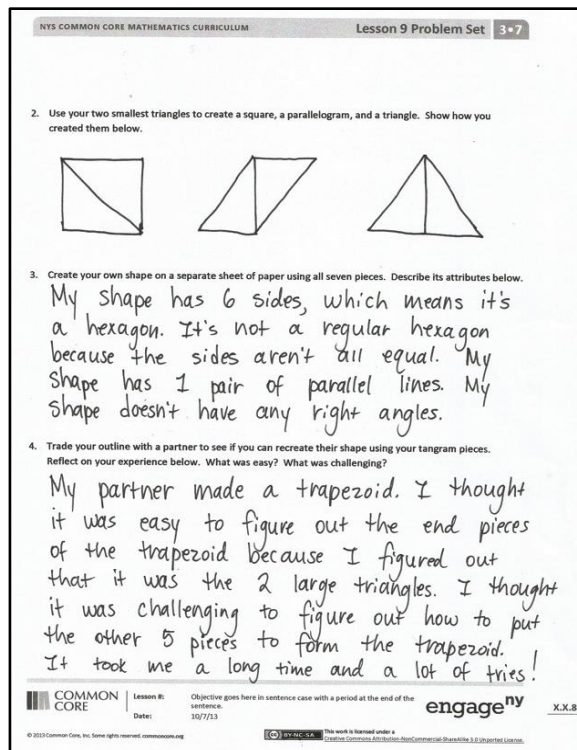 NYS COMMON CORE MATHEMATICS CURRICULUM
Lesson 9 Problem Set
3•7
2. Use your two smallest triangles to create a square, a parallelogram, and a triangle. Show how you
created them below.
3. Create your own shape on a separate sheet of paper using all seven pieces. Describe its attributes below.
My shape has 6 sides, which means it's
a hexagon. It's not a regular hexagon
because the sides aren't all equal. My
shape has 1 pair of parallel lines. My
shape doesn't have any right angles.
4. Trade your outline with a partner to see if you can recreate their shape using your tangram pieces.
Reflect on your experience below. What was easy? What was challenging?
My partner made a trapezoid. I thought
it was easy to figure out the end pieces
of the trapezoid because I figured out
that it was the 2 large triangles. I thought
it was challenging to figure out how to put
the other 5 pieces to form the trapezoid.
It took me a long time and a lot of tries!
COMMON
CORE
Lesson #:
Objective goes here in sentence case with a period at the end of the
sentence.
Date:
10/7/13
engage ny
X.X.8
© 2013 Common Core, Inc. Some rights reserved. commoncore.org
CC BY-NC-SA
This work is licensed under a
Creative Commons Attribution-NonCommercial-ShareAlike 3.0 Unported License.